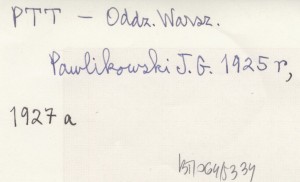 PTT – Oddz. Warsz.
Pawlikowski J. G. 1925 r,
1927 a